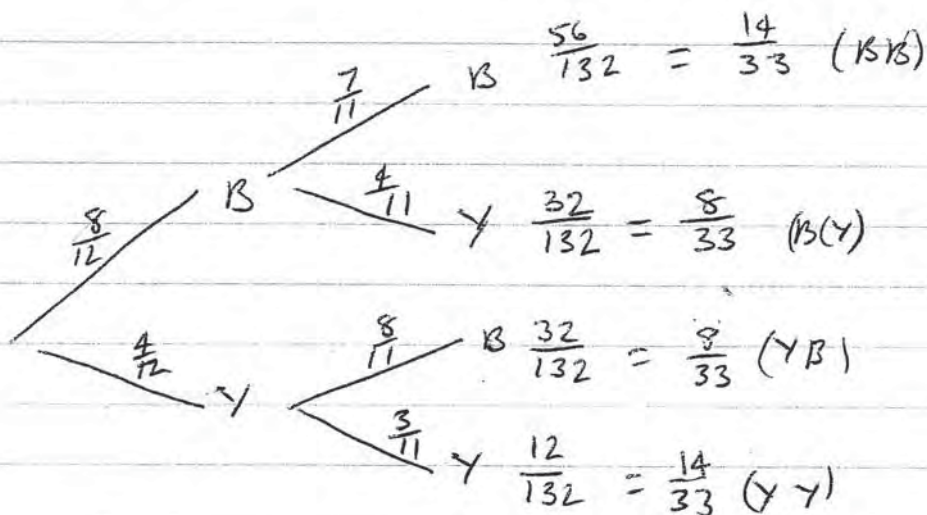 7/11 B 56/132 = 14/33 (BB)
8/12 B 4/11 Y 32/132 = 8/33 (B(Y)
4/12 Y 8/11 B 32/132 = 8/33 (YB)
3/11 Y 12/132 = 14/33 (YY)